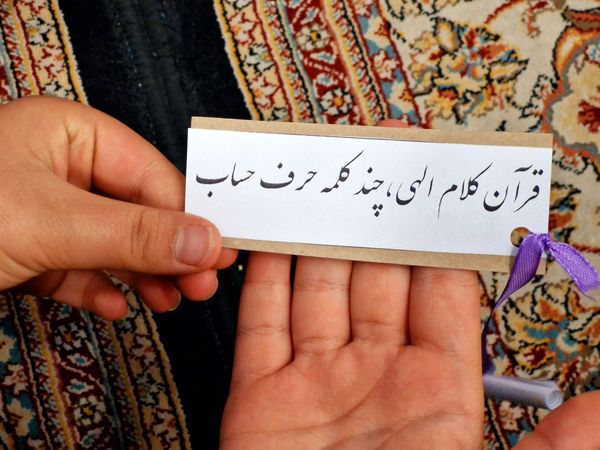 قرآن کلام الهی، چند کلمه حرف حساب